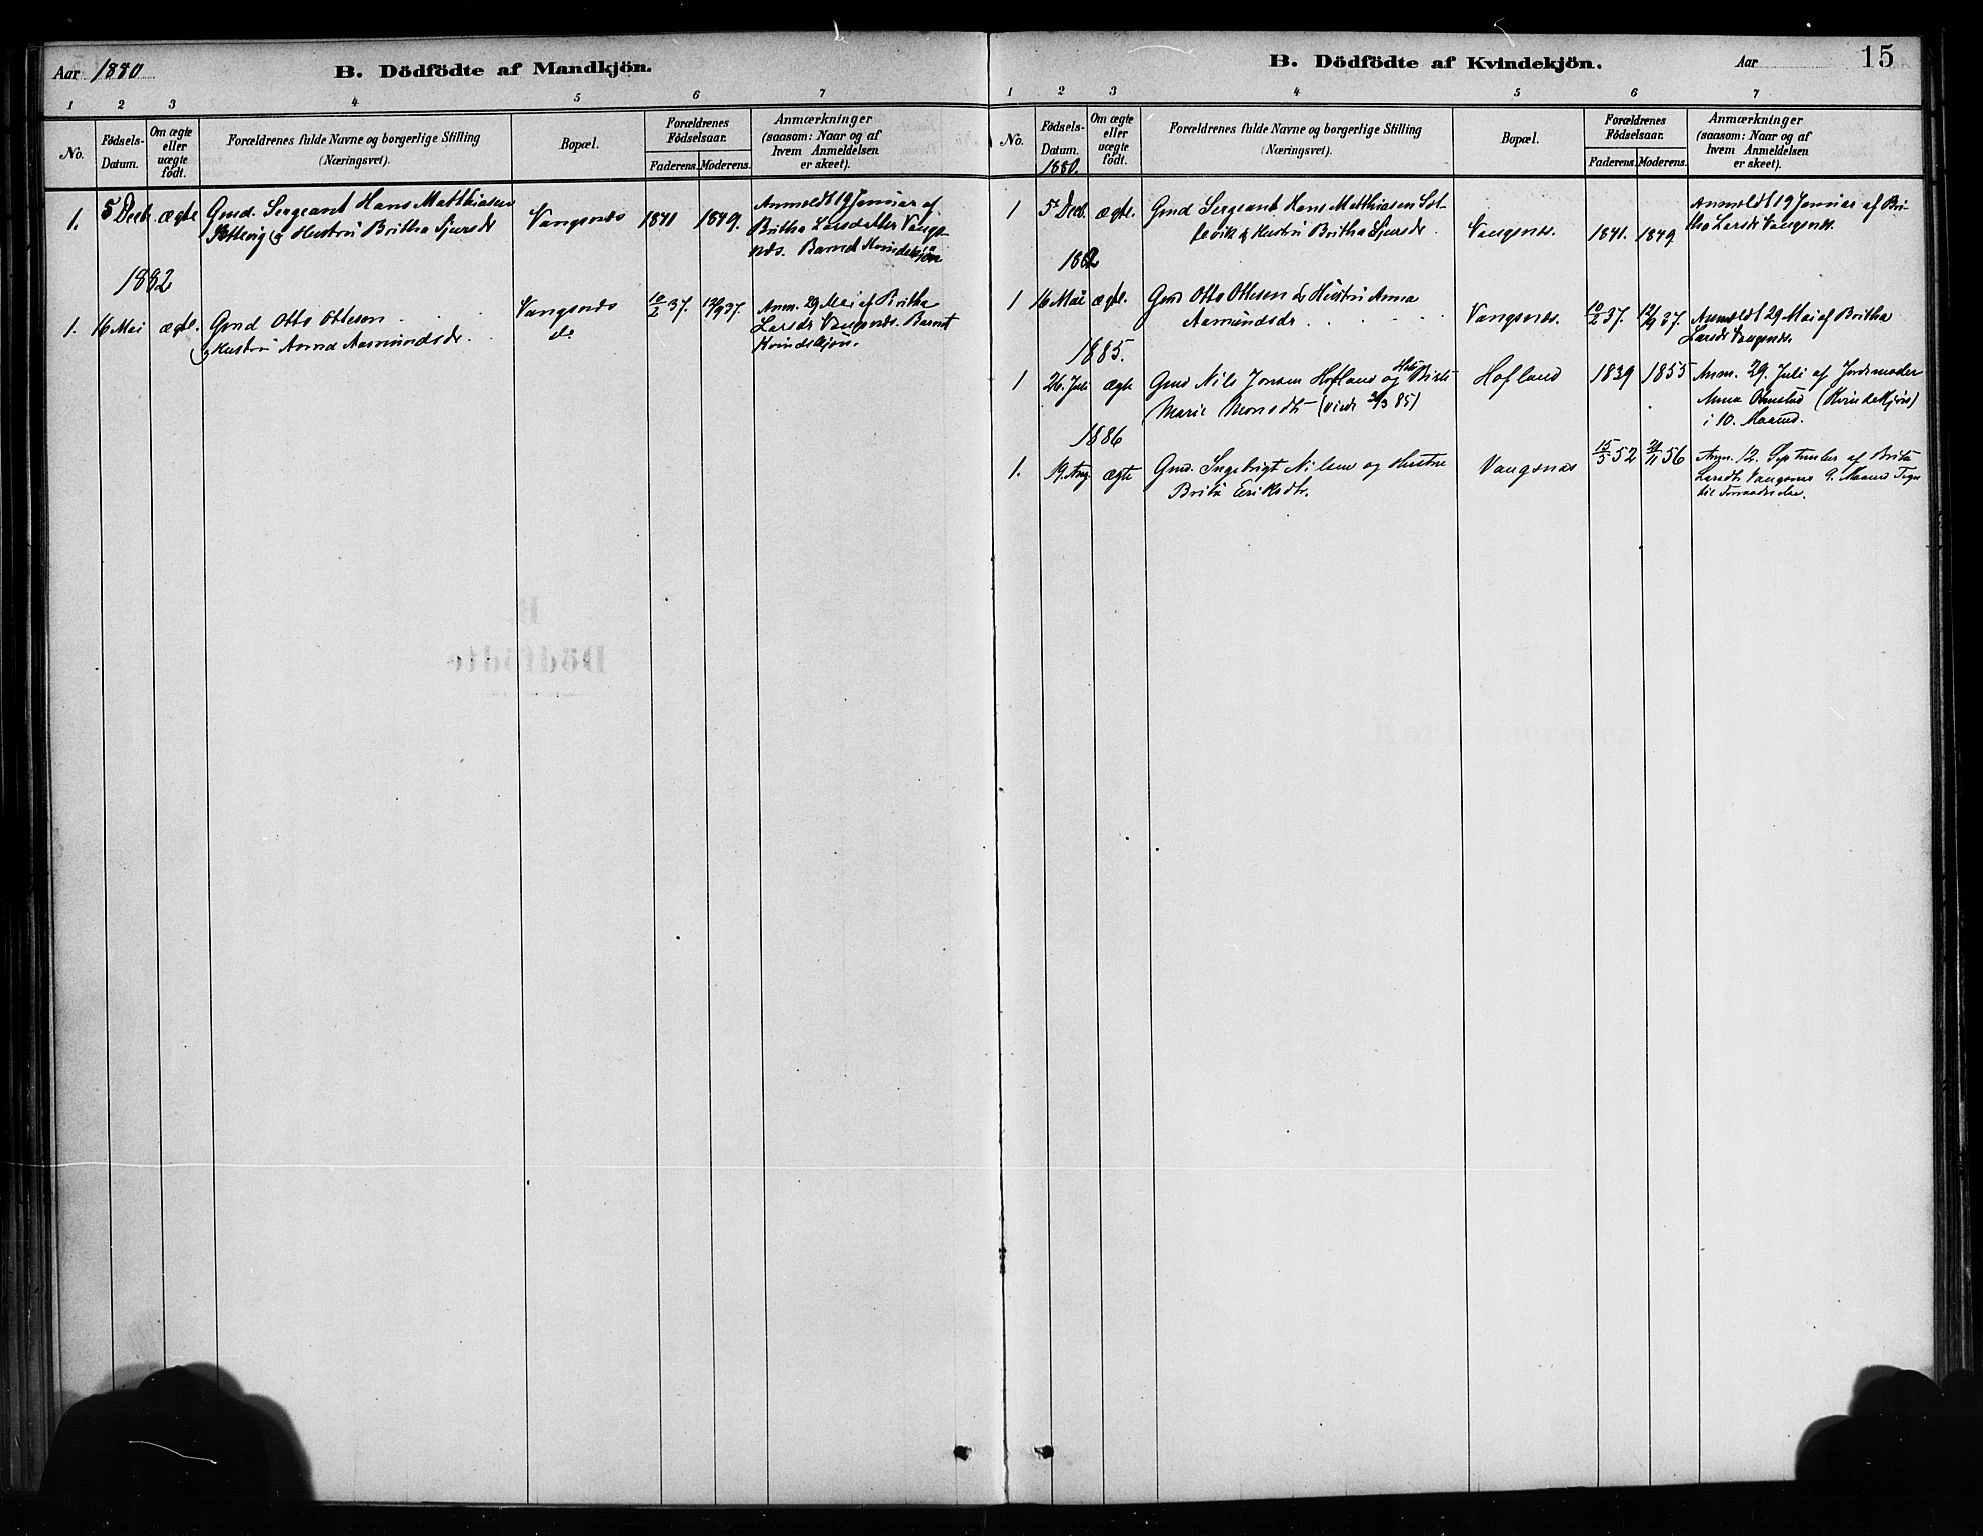 Aar 1880 B. Dödfödte af Mandkjön.
1 2 3 4 5 6 7
No. Födsels-Datum. Om ægte eller uægte födt. Forældrenes fulde Navne og borgerlige Stilling (Næringsvei). Bopæl. Forældrenes Födselsaar. Faderens. Moderens. Anmærkninger (saasom: Naar og af hvem Anmeldelsen er skeet).
1. 5 Decb. ægte Gmd. Sergeant Hans Matthiasen Vangsnæs 1841 1849. Anmeldt 19 Januar af
Hustru Britha Sjursdr Britha Larsdatter Vangs-
næs. Barnet Kvindekjøn
1882
1. 16 Mai ægte. Gmd Otto Ottesen Vangsnæs 10/2 37. 12/9 37. Anm. 29 Mai af Britha
og Hustru Anna Aasmundsdr. Larsdr Vangsnæs. Barnet
Kvindekjøn.
B. Dödfödte af Kvindekjön. Aar 15
1 2 3 4 5 6 7
No. Födsels-Datum. Om ægte eller uægte födt. Forældrenes fulde Navne og borgerlige Stilling (Næringsvei). Bopæl. Forældrenes Födselsaar. Faderens. Moderens. Anmærkninger (saasom: Naar og af hvem Anmeldelsen er skeet).
1880.
1 5 Decb. ægte. Gmd Sergeant Hans Matthiasen Vangsnæs. 1841. 1849 Anmeldt 19 Januar af Bri-
Hustru Britha Sjursdr. tha Larsdr Vangsnæs.
1882
1 16 Mai ægte. Gmd Otto Ottesen & Hustru Anna Vangsnæs. 10/2 37. 12/9 37. Anmeldt 29 Mai af Britha
Aasmundsdr Larsdr Vangsnæs.
1885.
1 26. Juli ægte Gmd Nils Jonsen Hofland og Hofland 1839 1855 Anm. 29. Juli af Jordemoder
Marie Monsdtr (viede 85) Anna (Kvindekjøn)
i 10. Maaned.
1886
1. 19. Aug ægte Gmd. Ingebrigt Nilsen og Hustru Vangsnæs 15/5 52 56 Anm. 12. September af Brita
Brita Eriksdtr. Larsdtr Vangsnes 9. Maaned Tegn
til Forraadnelse.